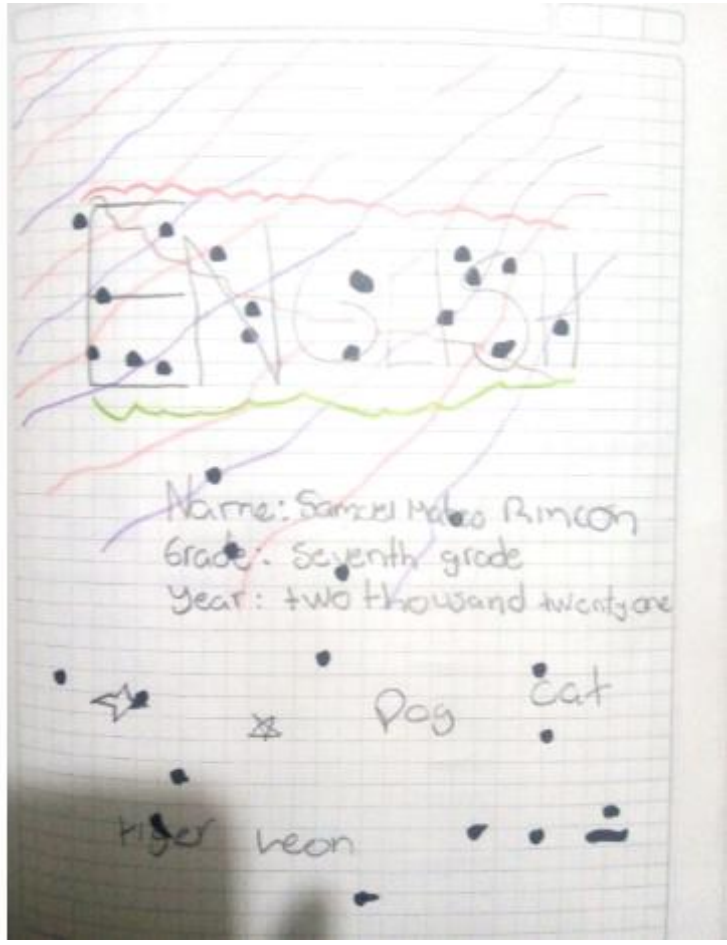 ENGLISH
Name: Samuel Mateo Rincon
Grade: Seventh grade
Year: two thousand twenty one
Dog cat
tiger Leon